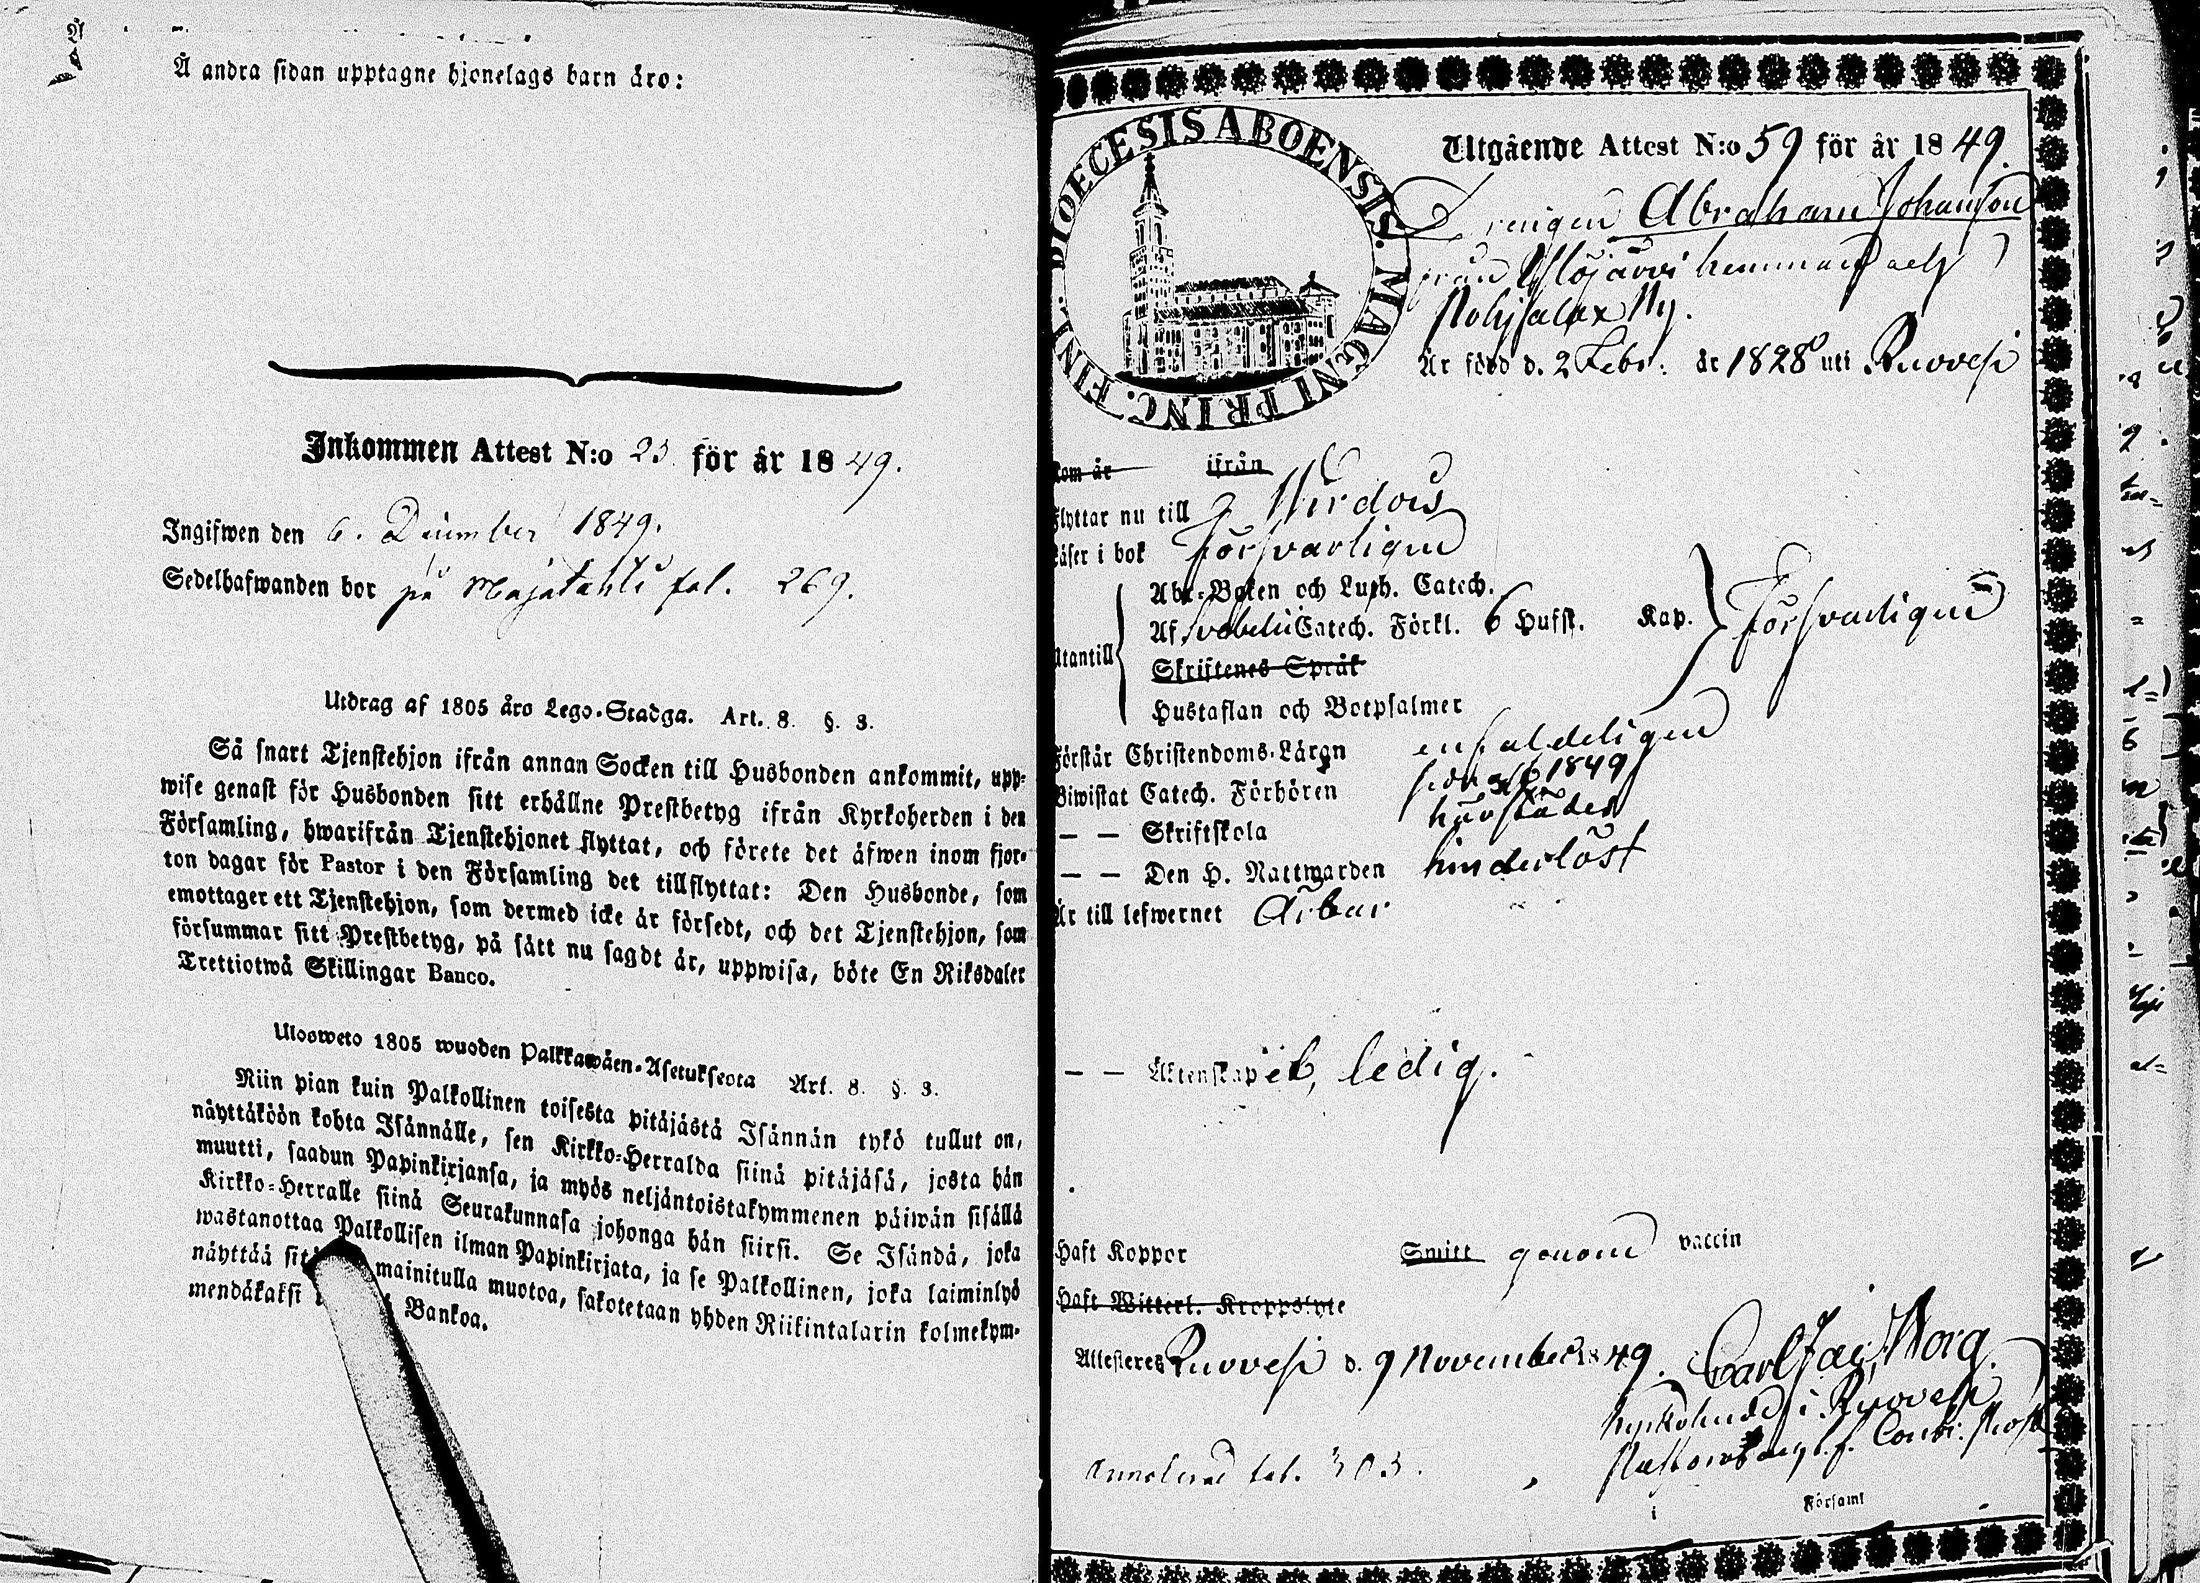 Å andra sidan upptagne hjonelags barn äro:
Inkommen Attest N:o 23 för år 1849.
Ingifwen den 6. December 1849.
Sedelhafwanden bor på Majatahti fol. 269.
Utdrag af 1805 åro Lego-Stadga. Art. 8. §. 3.
Så snart Tjenstehjon ifrån annan Socken till Husbonden ankommit, upp-
wise genast för Husbonden sitt erhållne Prestbetyg ifrån Kyrkoherden i den
Församling, hwarifrån Tjenstehjonet flyttat, och förete det äfwen inom fjor-
ton dagar för Pastor i den Församling det tillflyttat: Den Husbonde, som
emottager ett Tjenstehjon, som dermed icke är försedt, och det Tjenstehjon, som
försummar sitt Prestbetyg, på sätt nu sagdt är, uppwisa, böte En Riksdaler
Trettiotwå Skillingar Banco.
Ulosweto 1805 wuoden Palkkawäen-Asetuksesta Art. 8. §. 3.
Niin pian kuin Palkollinen toisesta pitäjästä Isännän tykö tullut on,
näyttäköön kohta Isännälle, sen Kirkko-Herralda siinä pitäjäsä, josta hän
muutti, saadun Papinkirjansa, ja myös neljäntoistakymmenen päiwän sisällä
Kirkko-Herralle siinä Seurakunnasa johonga hän siirsi. Se Isändä, joka
wastanottaa Palkollisen ilman Papinkirjata, ja se Palkollinen, joka laiminlyö
näyttää mainitulla muotoa, sakotetaan yhden Riikintalarin kolmekym-
mendäkaksi Bankoa.
DIOECESIS ABOENSIS. MAGNI PRINC. FINL.
Utgående Attest N:o 59 för år 1849.
Drengen Abraham Johansson
från Ylöjärvi hemman
Är född d. 2 Febr. år 1828 uti Ruovesi
Kom år ifrån
Flyttar nu till Virdois
Läser i bok försvarligen
Abc-Boken och Luth. Catech.
Af Svebelii Catech. Förkl. 6 Hufst. Kap. försvarligen
Utantill
Skriftenes Språk
Hustaflan och Botpsalmer
Förstår Christendoms-Läran enfaldeligen
Biwistat Catech. Förhören 1849
— — Skriftskola härstädes
— — Den H. Nattwarden hinderlöst
Är till lefwernet Ärbar
— — Äktenskap eb, ledig.
Haft Koppor Smitt genom vaccin
Haft Witterl. Kroppslyte
Attesteres Ruovesi d. 9 November 1849. Carl Jac. Worg.
kyrkoherde i Ruovesi
Annoterad fol. 303.
i Församl